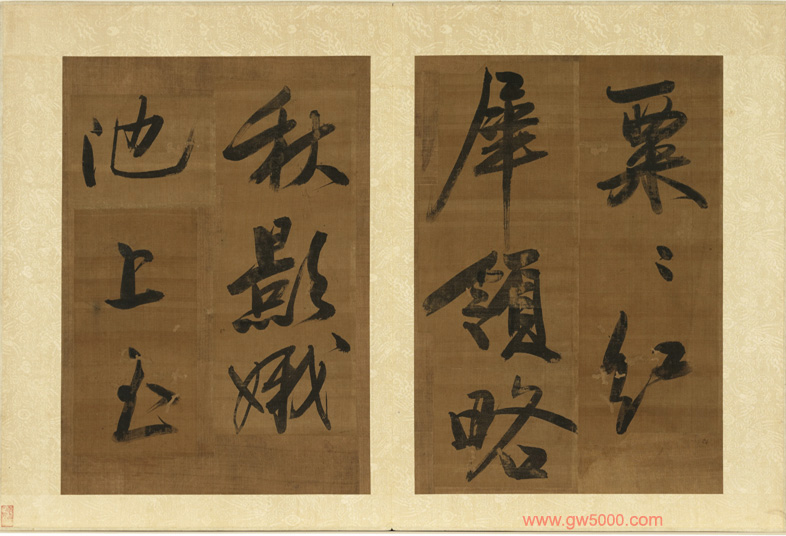 粟〻紅
犀領略
秋影娥
池上玉
www.gw5000.com